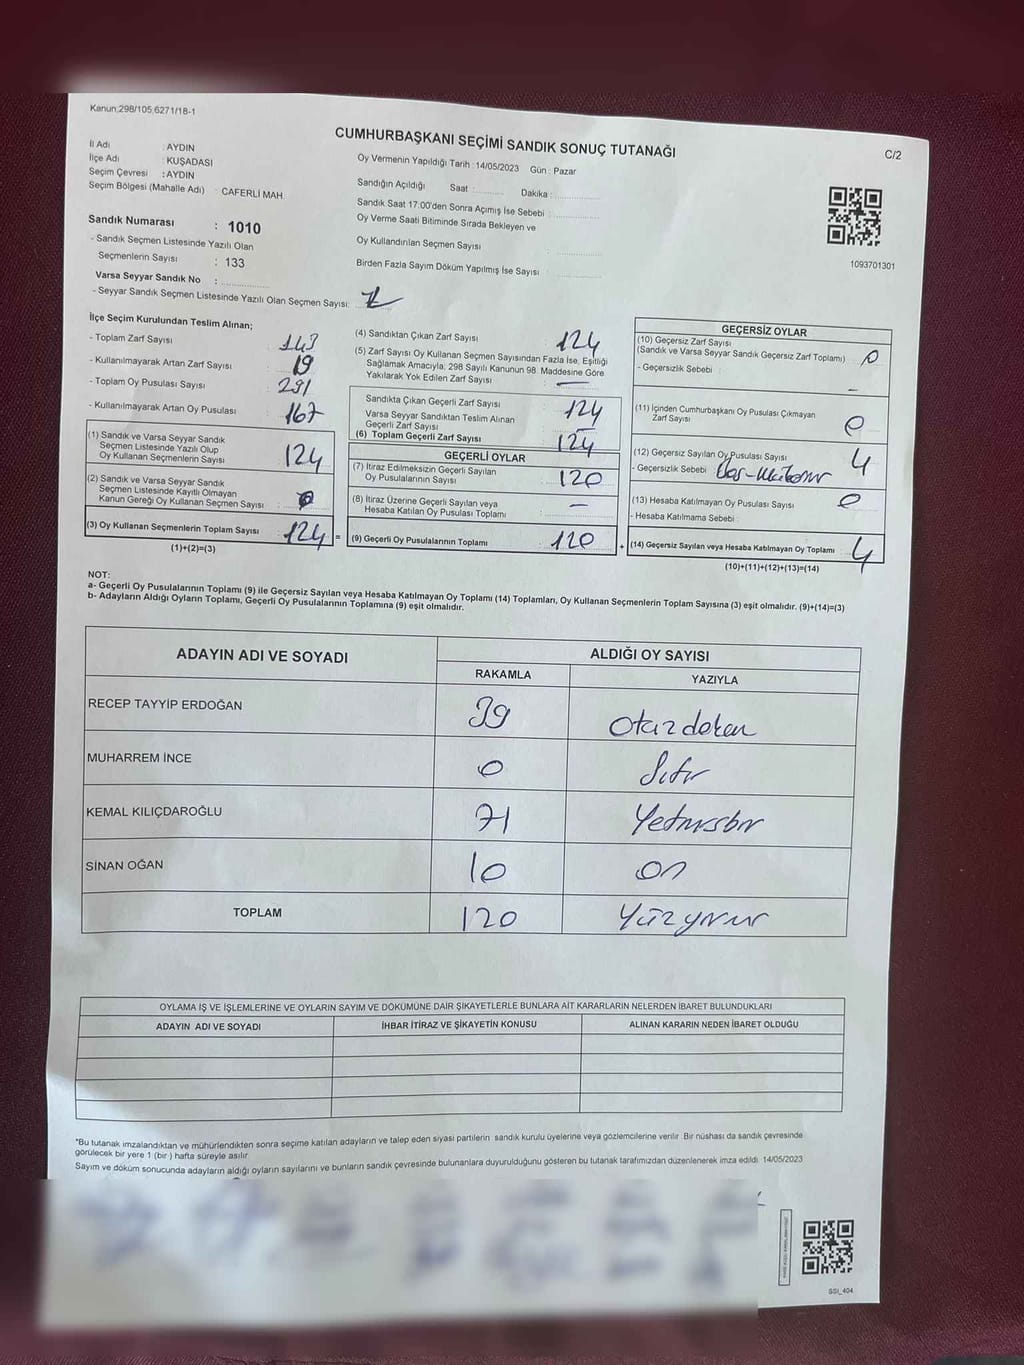 Kanun;298/105,6271/18-1
CUMHURBAŞKANI SEÇİMİ SANDIK SONUÇ TUTANAĞI
C/2
İl Adı : AYDIN
İlçe Adı : KUŞADASI
Seçim Çevresi : AYDIN
Seçim Bölgesi (Mahalle Adı) : CAFERLİ MAH
Sandık Numarası : 1010
- Sandık Seçmen Listesinde Yazılı Olan
Seçmenlerin Sayısı : 133
Varsa Seyyar Sandık No :
- Seyyar Sandık Seçmen Listesinde Yazılı Olan Seçmen Sayısı:
Oy Vermenin Yapıldığı Tarih : 14/05/2023 Gün : Pazar
Sandığın Açıldığı Saat : Dakika :
Sandık Saat 17:00'den Sonra Açımış İse Sebebi :
Oy Verme Saati Bitiminde Sırada Bekleyen ve
Oy Kullandırılan Seçmen Sayısı :
Birden Fazla Sayım Döküm Yapılmış İse Sayısı :
1093701301
İlçe Seçim Kurulundan Teslim Alınan;
- Toplam Zarf Sayısı : 143
- Kullanılmayarak Artan Zarf Sayısı : 19
- Toplam Oy Pusulası Sayısı : 291
- Kullanılmayarak Artan Oy Pusulası : 167
(1) Sandık ve Varsa Seyyar Sandık
Seçmen Listesinde Yazılı Olup
Oy Kullanan Seçmenlerin Sayısı : 124
(2) Sandık ve Varsa Seyyar Sandık
Seçmen Listesinde Kayıtlı Olmayan
Kanun Gereği Oy Kullanan Seçmen Sayısı : 0
(3) Oy Kullanan Seçmenlerin Toplam Sayısı : 124 =
(1)+(2)=(3)
(4) Sandıktan Çıkan Zarf Sayısı : 124
(5) Zarf Sayısı Oy Kullanan Seçmen Sayısından Fazla İse, Eşitliği
Sağlamak Amacıyla; 298 Sayılı Kanunun 98. Maddesine Göre
Yakılarak Yok Edilen Zarf Sayısı : —
Sandıkta Çıkan Geçerli Zarf Sayısı : 124
Varsa Seyyar Sandıktan Teslim Alınan
Geçerli Zarf Sayısı : —
(6) Toplam Geçerli Zarf Sayısı : 124
GEÇERLİ OYLAR
(7) İtiraz Edilmeksizin Geçerli Sayılan
Oy Pusulalarının Sayısı : 120
(8) İtiraz Üzerine Geçerli Sayılan veya
Hesaba Katılan Oy Pusulası Toplamı : —
(9) Geçerli Oy Pusulalarının Toplamı : 120 +
GEÇERSİZ OYLAR
(10) Geçersiz Zarf Sayısı
(Sandık ve Varsa Seyyar Sandık Geçersiz Zarf Toplamı) : 0
- Geçersizlik Sebebi : —
(11) İçinden Cumhurbaşkanı Oy Pusulası Çıkmayan
Zarf Sayısı : 0
(12) Geçersiz Sayılan Oy Pusulası Sayısı : 4
- Geçersizlik Sebebi :
(13) Hesaba Katılmayan Oy Pusulası Sayısı : 0
- Hesaba Katılmama Sebebi :
(14) Geçersiz Sayılan veya Hesaba Katılmayan Oy Toplamı : 4
(10)+(11)+(12)+(13)=(14)
NOT:
a- Geçerli Oy Pusulalarının Toplamı (9) ile Geçersiz Sayılan veya Hesaba Katılmayan Oy Toplamı (14) Toplamları, Oy Kullanan Seçmenlerin Toplam Sayısına (3) eşit olmalıdır. (9)+(14)=(3)
b- Adayların Aldığı Oyların Toplamı, Geçerli Oy Pusulalarının Toplamına (9) eşit olmalıdır.
ADAYIN ADI VE SOYADI ALDIĞI OY SAYISI
RAKAMLA YAZIYLA
RECEP TAYYİP ERDOĞAN 39 Otuzdokuz
MUHARREM İNCE 0 Sıfır
KEMAL KILIÇDAROĞLU 71 Yetmişbir
SİNAN OĞAN 10 on
TOPLAM 120 Yüzyirmi
OYLAMA İŞ VE İŞLEMLERİNE VE OYLARIN SAYIM VE DÖKÜMÜNE DAİR ŞİKAYETLERLE BUNLARA AİT KARARLARIN NELERDEN İBARET BULUNDUKLARI
ADAYIN ADI VE SOYADI İHBAR İTİRAZ VE ŞİKAYETİN KONUSU ALINAN KARARIN NEDEN İBARET OLDUĞU
"Bu tutanak imzalandıktan ve mühürlendikten sonra seçime katılan adayların ve talep eden siyasi partilerin sandık kurulu üyelerine veya gözlemcilerine verilir. Bir nüshası da sandık çevresinde
görülecek bir yere 1 (bir ) hafta süreyle asılır.
Sayım ve döküm sonucunda adayların aldığı oyların sayılarını ve bunların sandık çevresinde bulunanlara duyurulduğunu gösteren bu tutanak tarafımızdan düzenlenerek imza edildi. 14/05/2023
SSİ_404